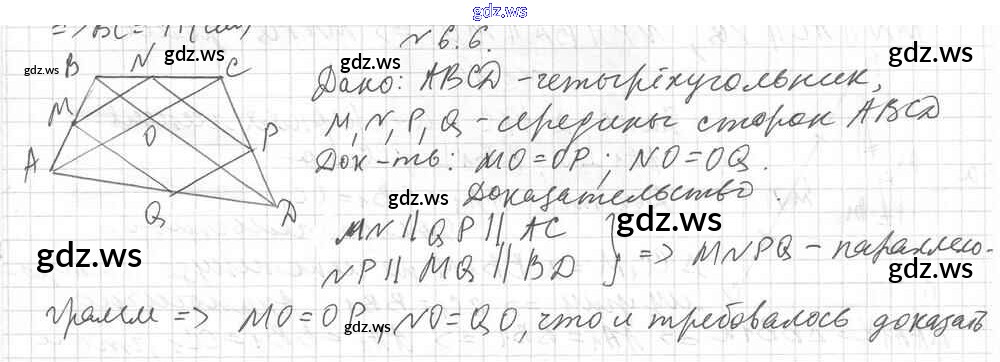 gdz.ws
=> BC = 14 (см)
gdz.ws
№ 6.6.
gdz.ws
gdz.ws
gdz.ws
B N C
M
O
P
A
Q
D
Дано: ABCD - четырёхугольник,
M, N, P, Q - середины сторон ABCD
Док-ть: MO = OP; NO = OQ.
gdz.ws
Доказательство.
MN || QP || AC
NP || MQ || BD } => MNPQ - параллело-
gdz.ws
gdz.ws
gdz.ws
грамм => MO = OP, NO = QO, что и требовалось доказать
gdz.ws